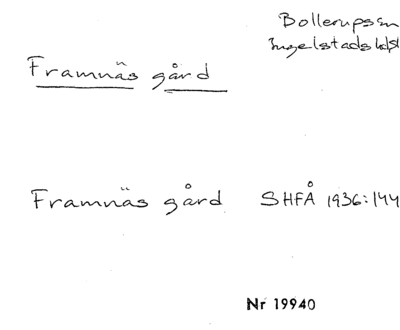 Bollerupssn
Ingelstads hd
Framnäs gård
Framnäs gård SHFÅ 1936:144
Nr 19940